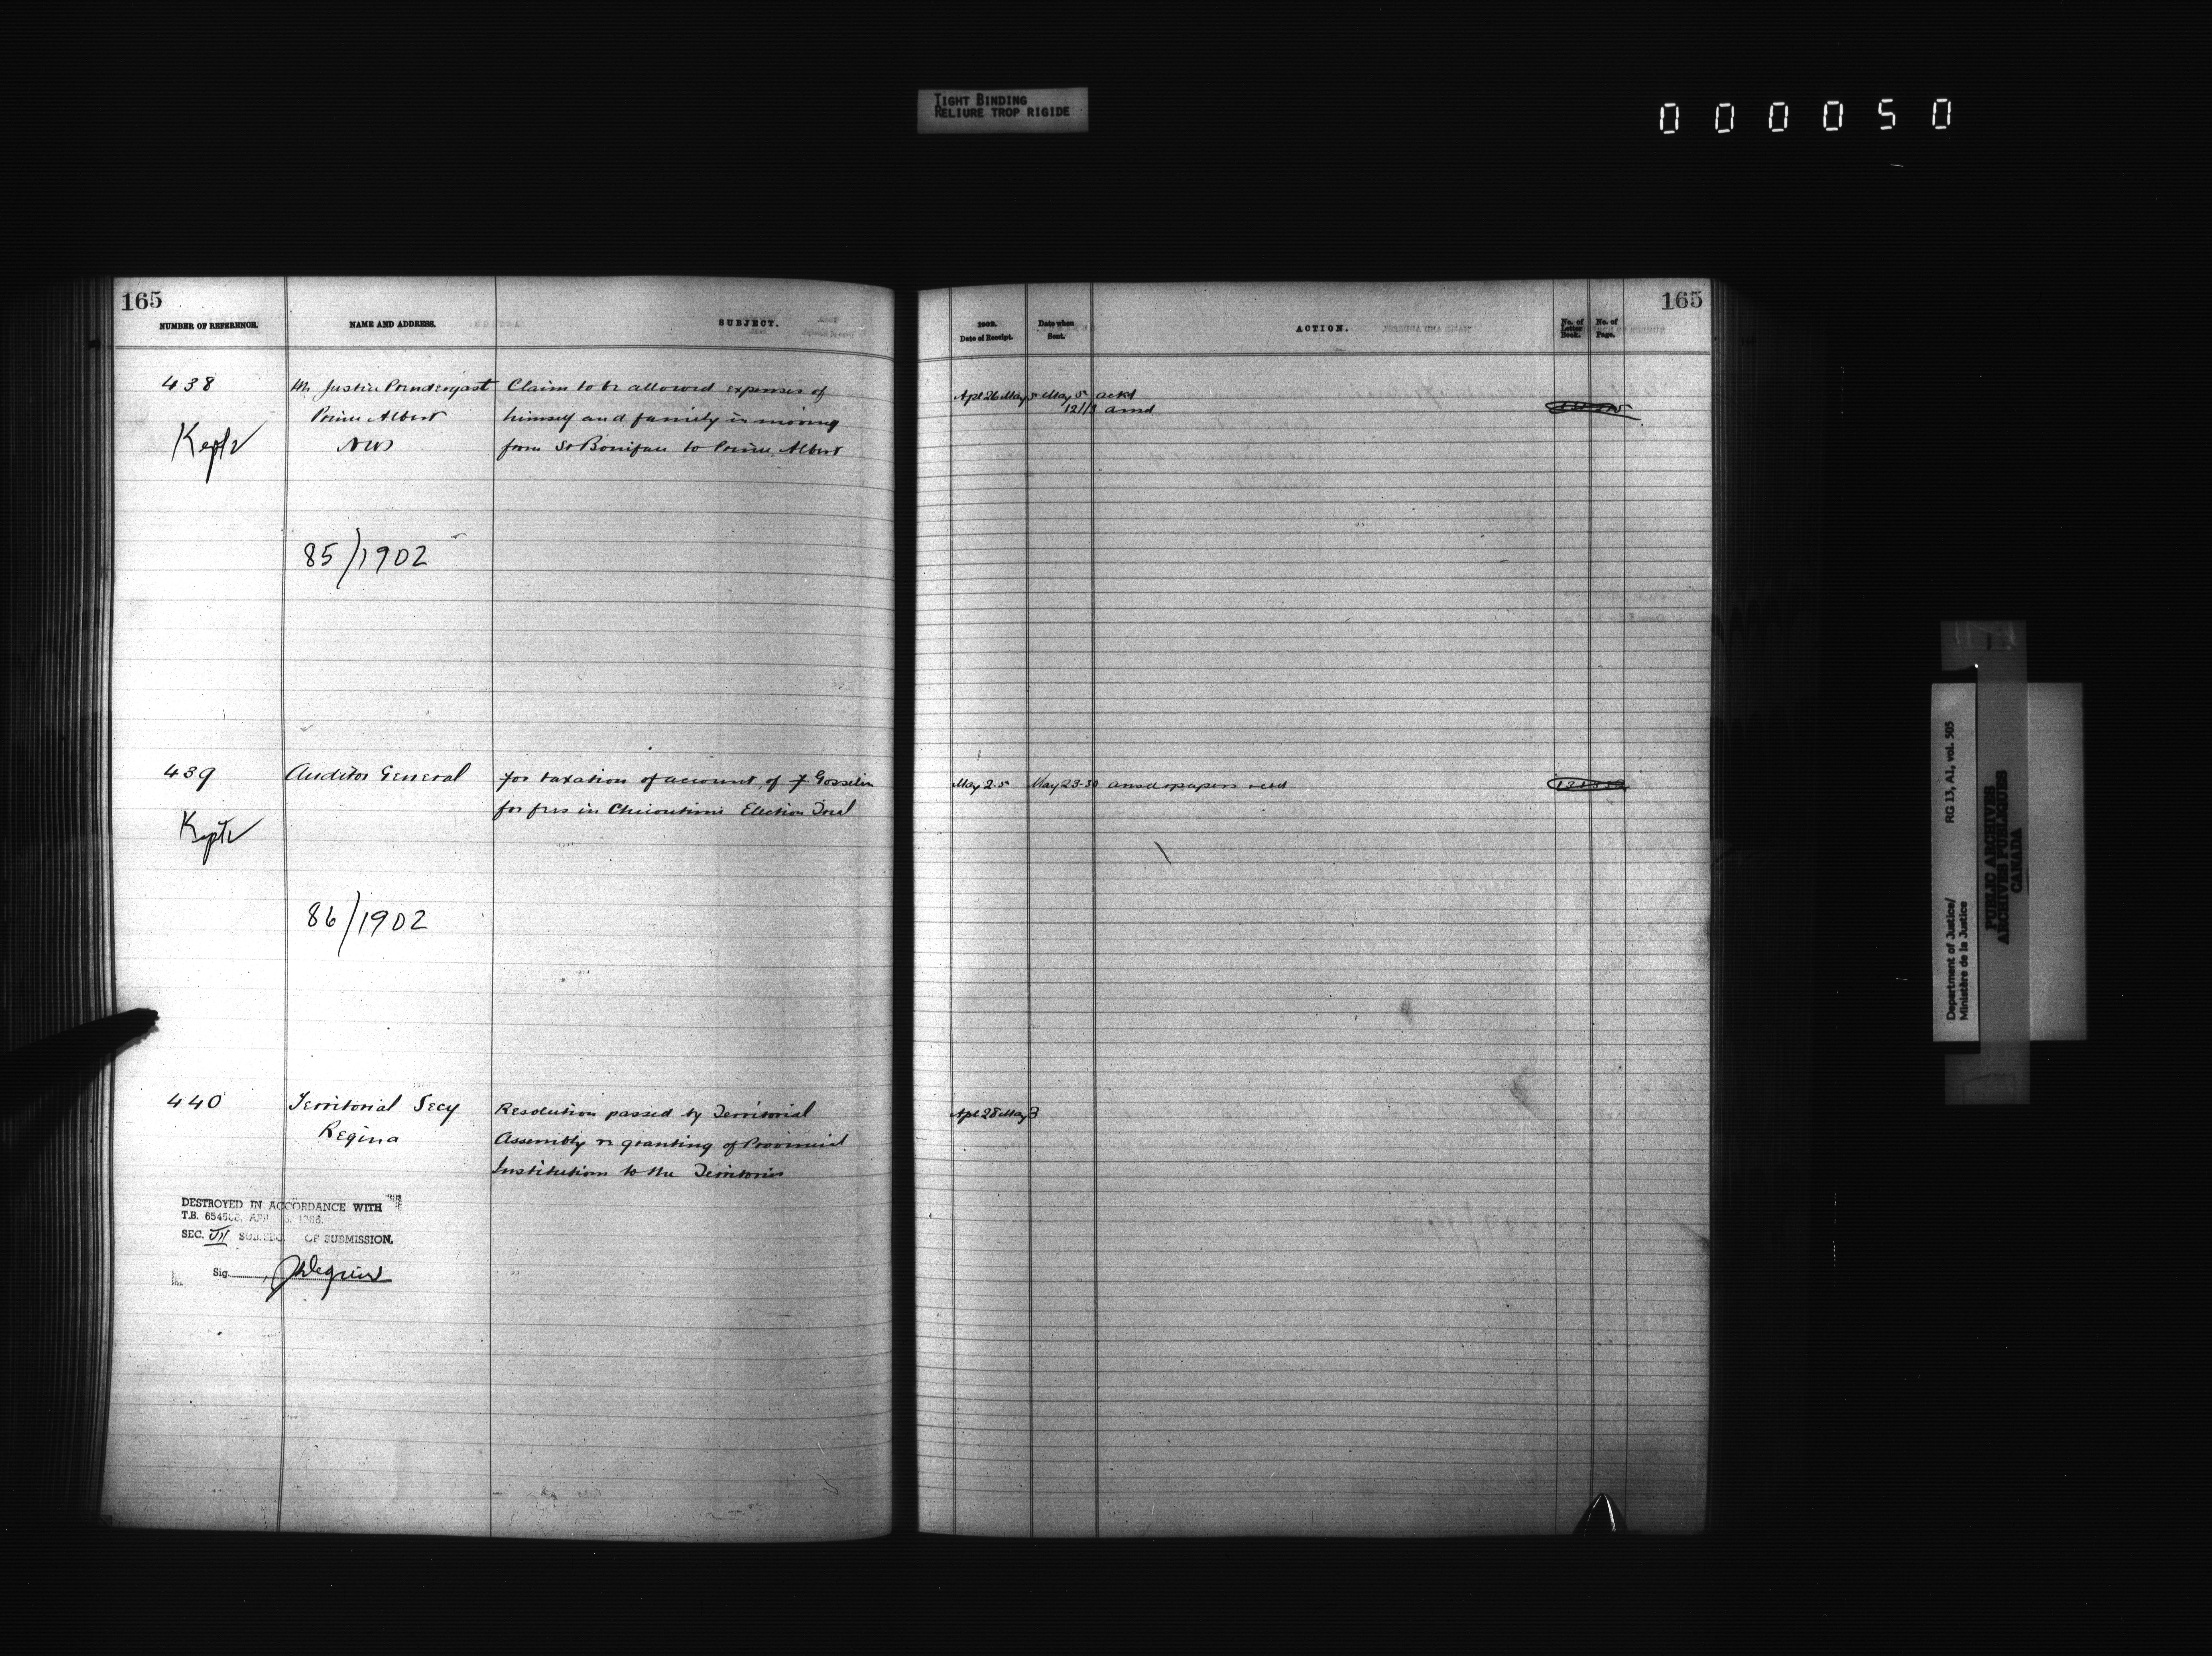 TIGHT BINDING
RELIURE TROP RIGIDE
000050
165
NUMBER OF REFERENCE.
NAME AND ADDRESS.
SUBJECT.
438
Mr Justice Prendergast
Prince Albert
NWT
Kept
Claim to be allowed expenses of
himself and family in moving
from St Boniface to Prince Albert
85/1902
439
Auditor General
Kept
for taxation of account of F Gosselin
for fees in Chicoutimi Election Trial
86/1902
440
Territorial Secy
Regina
Resolution passed by Territorial
Assembly re granting of Provincial
Institutions to the Territories
DESTROYED IN ACCORDANCE WITH
T.B. 6545
SEC. VII SUB.SEC. OF SUBMISSION.
Sig.
165
1902.
Date of Receipt.
Date when
Sent.
ACTION.
No. of
Letter
Book.
No. of
Page.
Apl 26 May 5 May 5 ackd
12/13 ansd
May 2.5 May 23-30 ansd & papers retd
Apl 28 May 3
Department of Justice/
Ministère de la Justice
RG 13, A1, vol. 505
PUBLIC ARCHIVES
ARCHIVES PUBLIQUES
CANADA